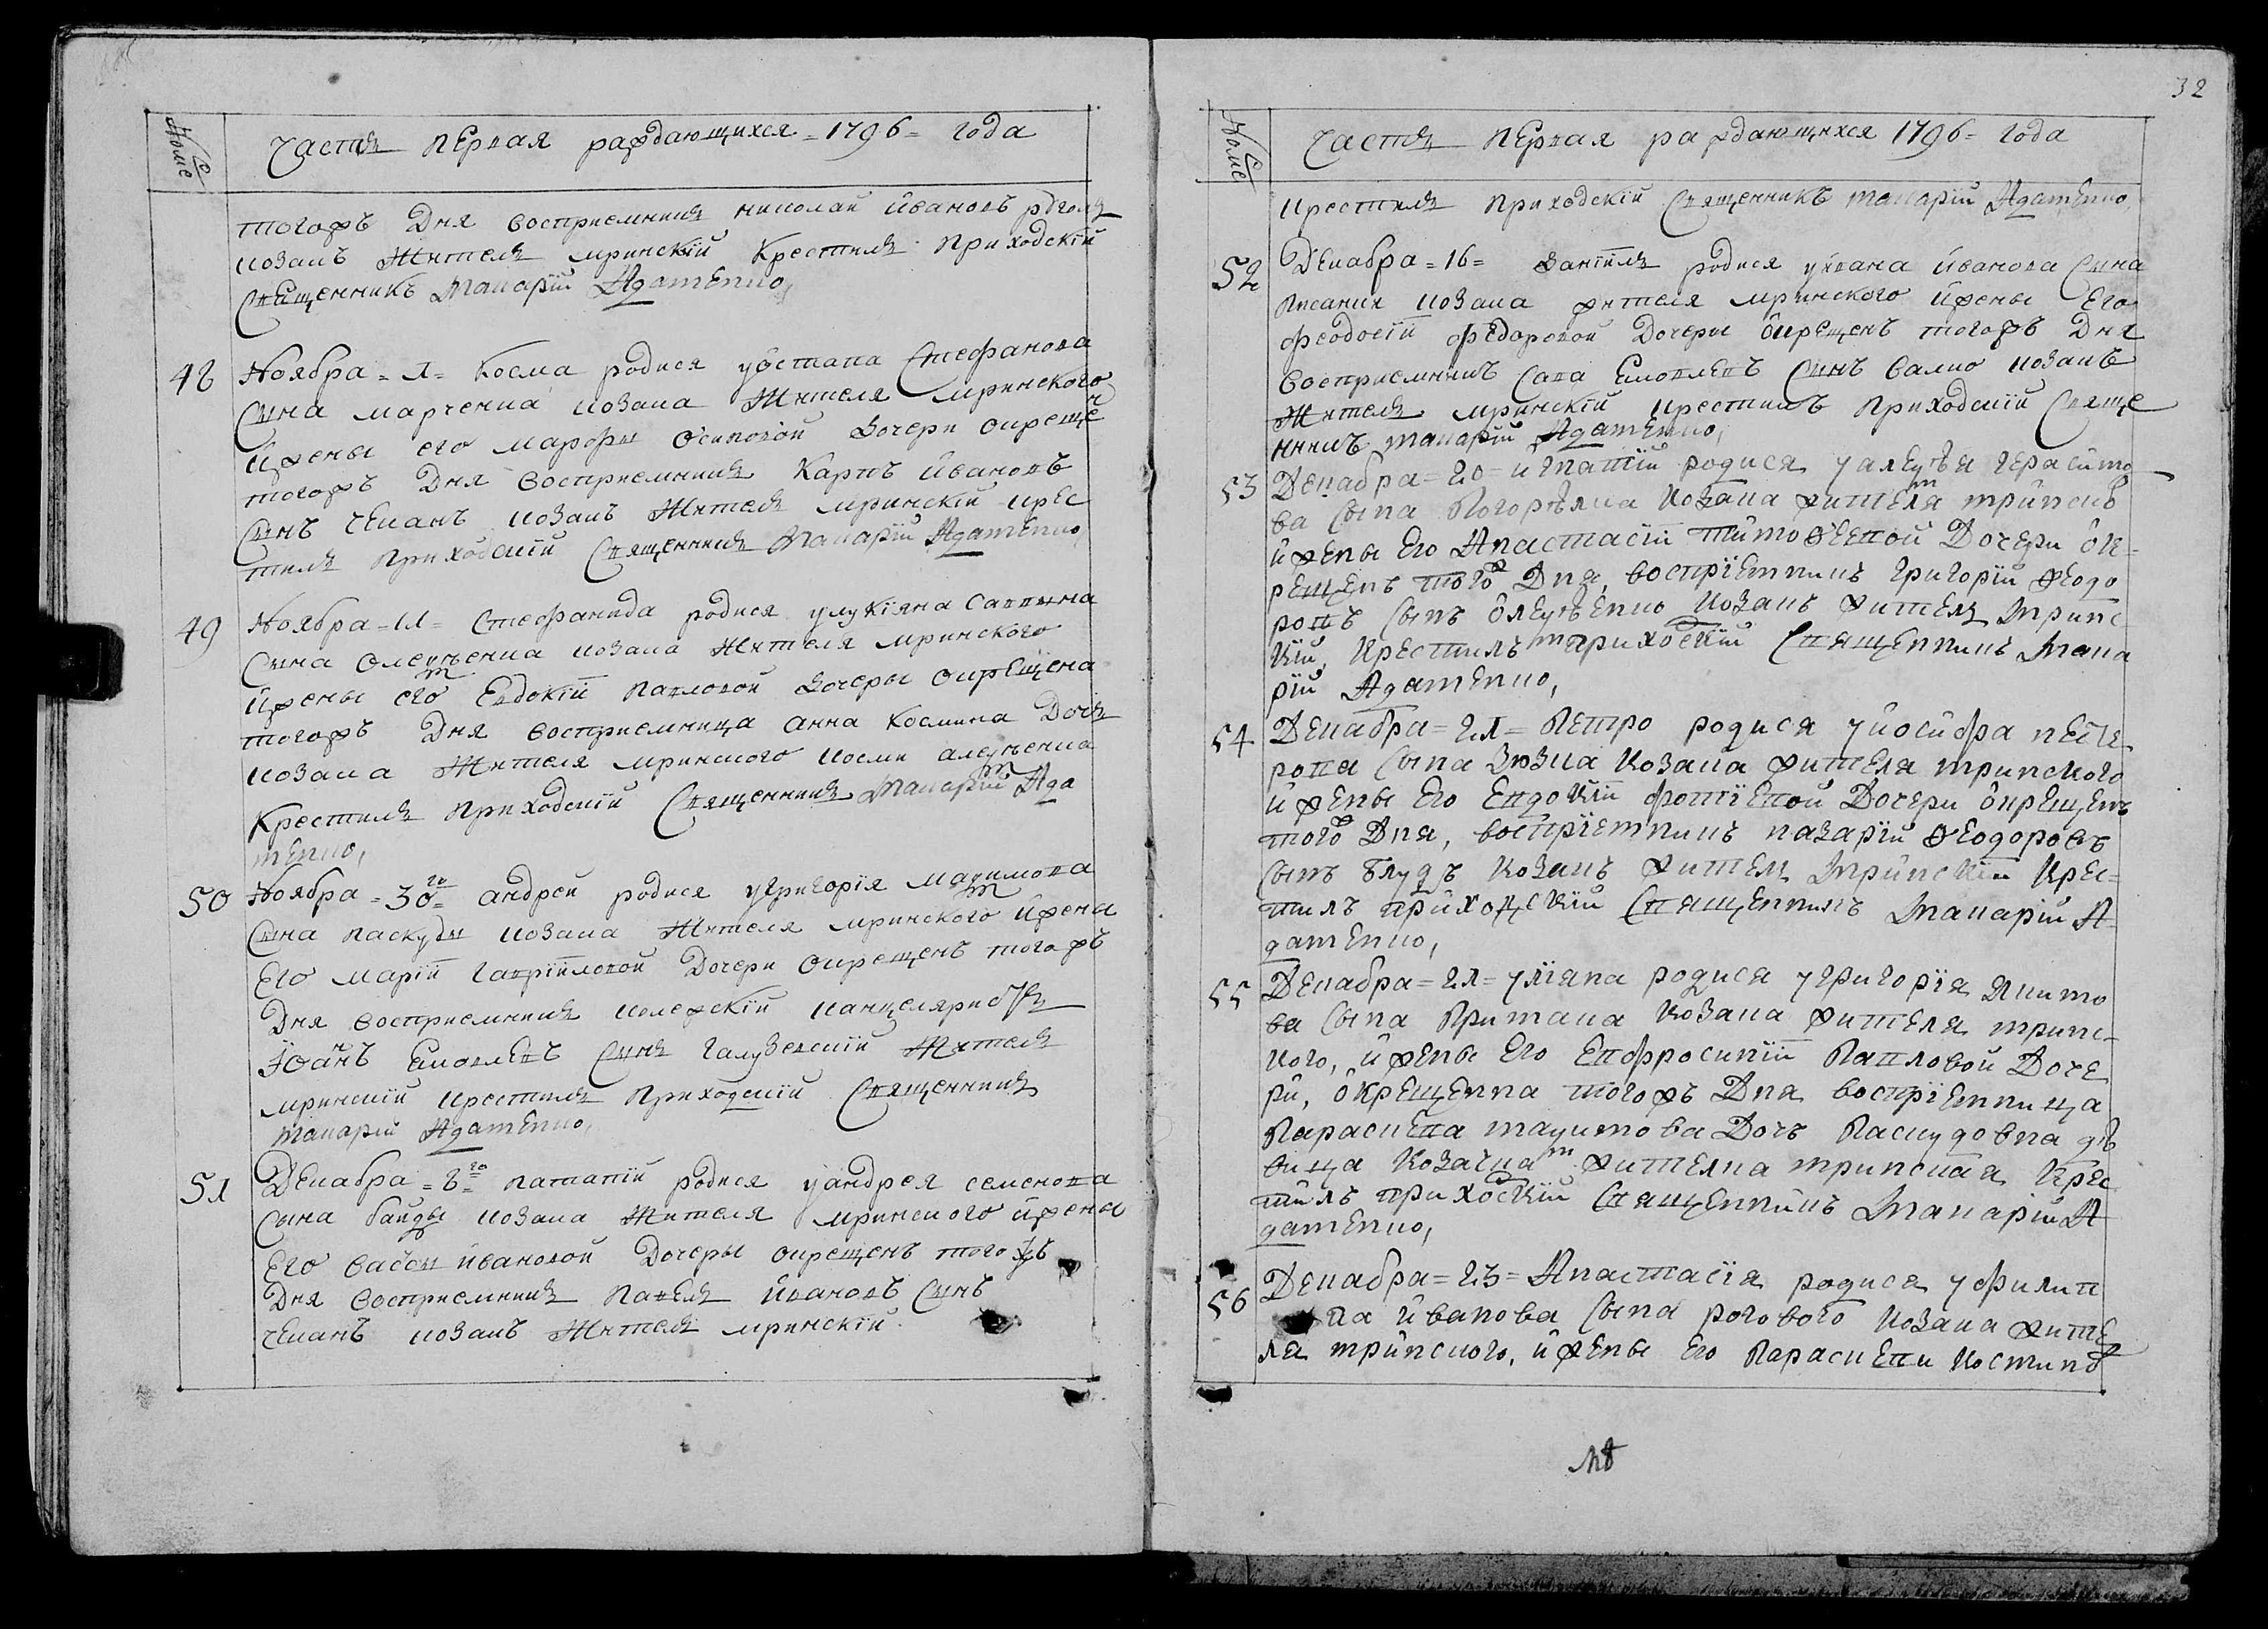 Номе
Часть Первая раждающихся = 1796 = года
тогожъ Дня восприемникъ николай Ивановъ
козакъ Житель мринский Крестилъ приходский
Священникъ Макарий Адаменко,
48
Ноября = 1 = Косма родися уостапа Стефанова
Сына марченка козака Жителя мринского
ижены его марфы осиповой Дочери окреще
тогожъ Дня восприемникъ Карпъ Ивановъ
Сынъ чепанъ козакъ Житель мринский крес
тилъ приходский Священникъ Макарий Адаменко,
49
Ноября = 11 = Стефанида родися улукіяна Саввина
Сына олеученка козака Жителя мринского
ижены его Евдокій Павловой Дочеры окрещена
тогожъ Дня восприемница анна Космина Дочь
козака Жителя мринского косми алеученка
Крестилъ приходский Священникъ Макарий Ада
менко,
50
Ноября = 30го = андрей родися угригорія Мацимова
Сына паскуды козака Жителя мринского ижены
Его Марій гавріиловой Дочери окрещенъ тогожъ
Дня восприемникъ колежскій канцеляри
Іоанъ Яковлевъ Сынъ галузевский Житель
мринский крестилъ Приходский Священникъ
Макарий Адаменко,
51
Декабра = 8го = патапій родися уандрея семенова
Сына байды козака Жителя мринского ижены
Его вассы ивановой Дочеры окрещенъ тогожъ
Дня восприемникъ Павелъ Ивановъ Сынъ
чепанъ козакъ Житель мринскій
32
Номе
Часть Первая раждающихся 1796 = года
крестилъ приходскій Священникъ макарій Адаменко,
52
Декабра = 16 = Даніилъ родися уивана иванова Сына
Писанки козака жителя мринского ижены Его
феодосій федоровой Дочеры окрещенъ тогожъ Дня
восприемникъ Сава Яковлевъ Сынъ Валко козакъ
Житель мринскій крестилъ Приходский Свяще
нникъ макарій Адаменко,
53
Декабра = 20 = игнатій родися уалеувя герасимо
ва Сына Погорѣлка Козака жителя мринско
ижены Его Анастасіи тимофеевой Дочери ок-
рещенъ того Дня, воспріемникъ григорій феодо
ровъ Сынъ олеувенко Козакъ житель мринс
кій, Крестилъ приходскій Священникъ Мака
рій Адаменко,
54
Декабра = 21 = Петро родися уиосифа несте
рова Сына Зюзка Козака жителя мринского
ижены Его Евдокіи фотіевой Дочери окрещенъ
того Дня, воспріемникъ назарій феодоровъ
Сынъ блудъ Козакъ житель мринскій Крес-
тилъ приходскій Священникъ Макарій А-
даменко,
55
Декабра = 21 = уліяна родися угригорія Якимо
ва Сына Примака Козака жителя мринс-
кого, ижены Его Ефросиніи Павловой Доче
ри, окрещенна тогожъ Дня воспріемница
Параскева мацимова Дочъ Паскудовна дѣ
вица Козачка жителка мринская Крес
тилъ приходскій Священникъ Макарій А
даменко,
56
Декабра = 23 = Анастасія родися уфилип
па иванова Сына рогового Козака жите
ля мринского, ижены Его Параскеви Костино